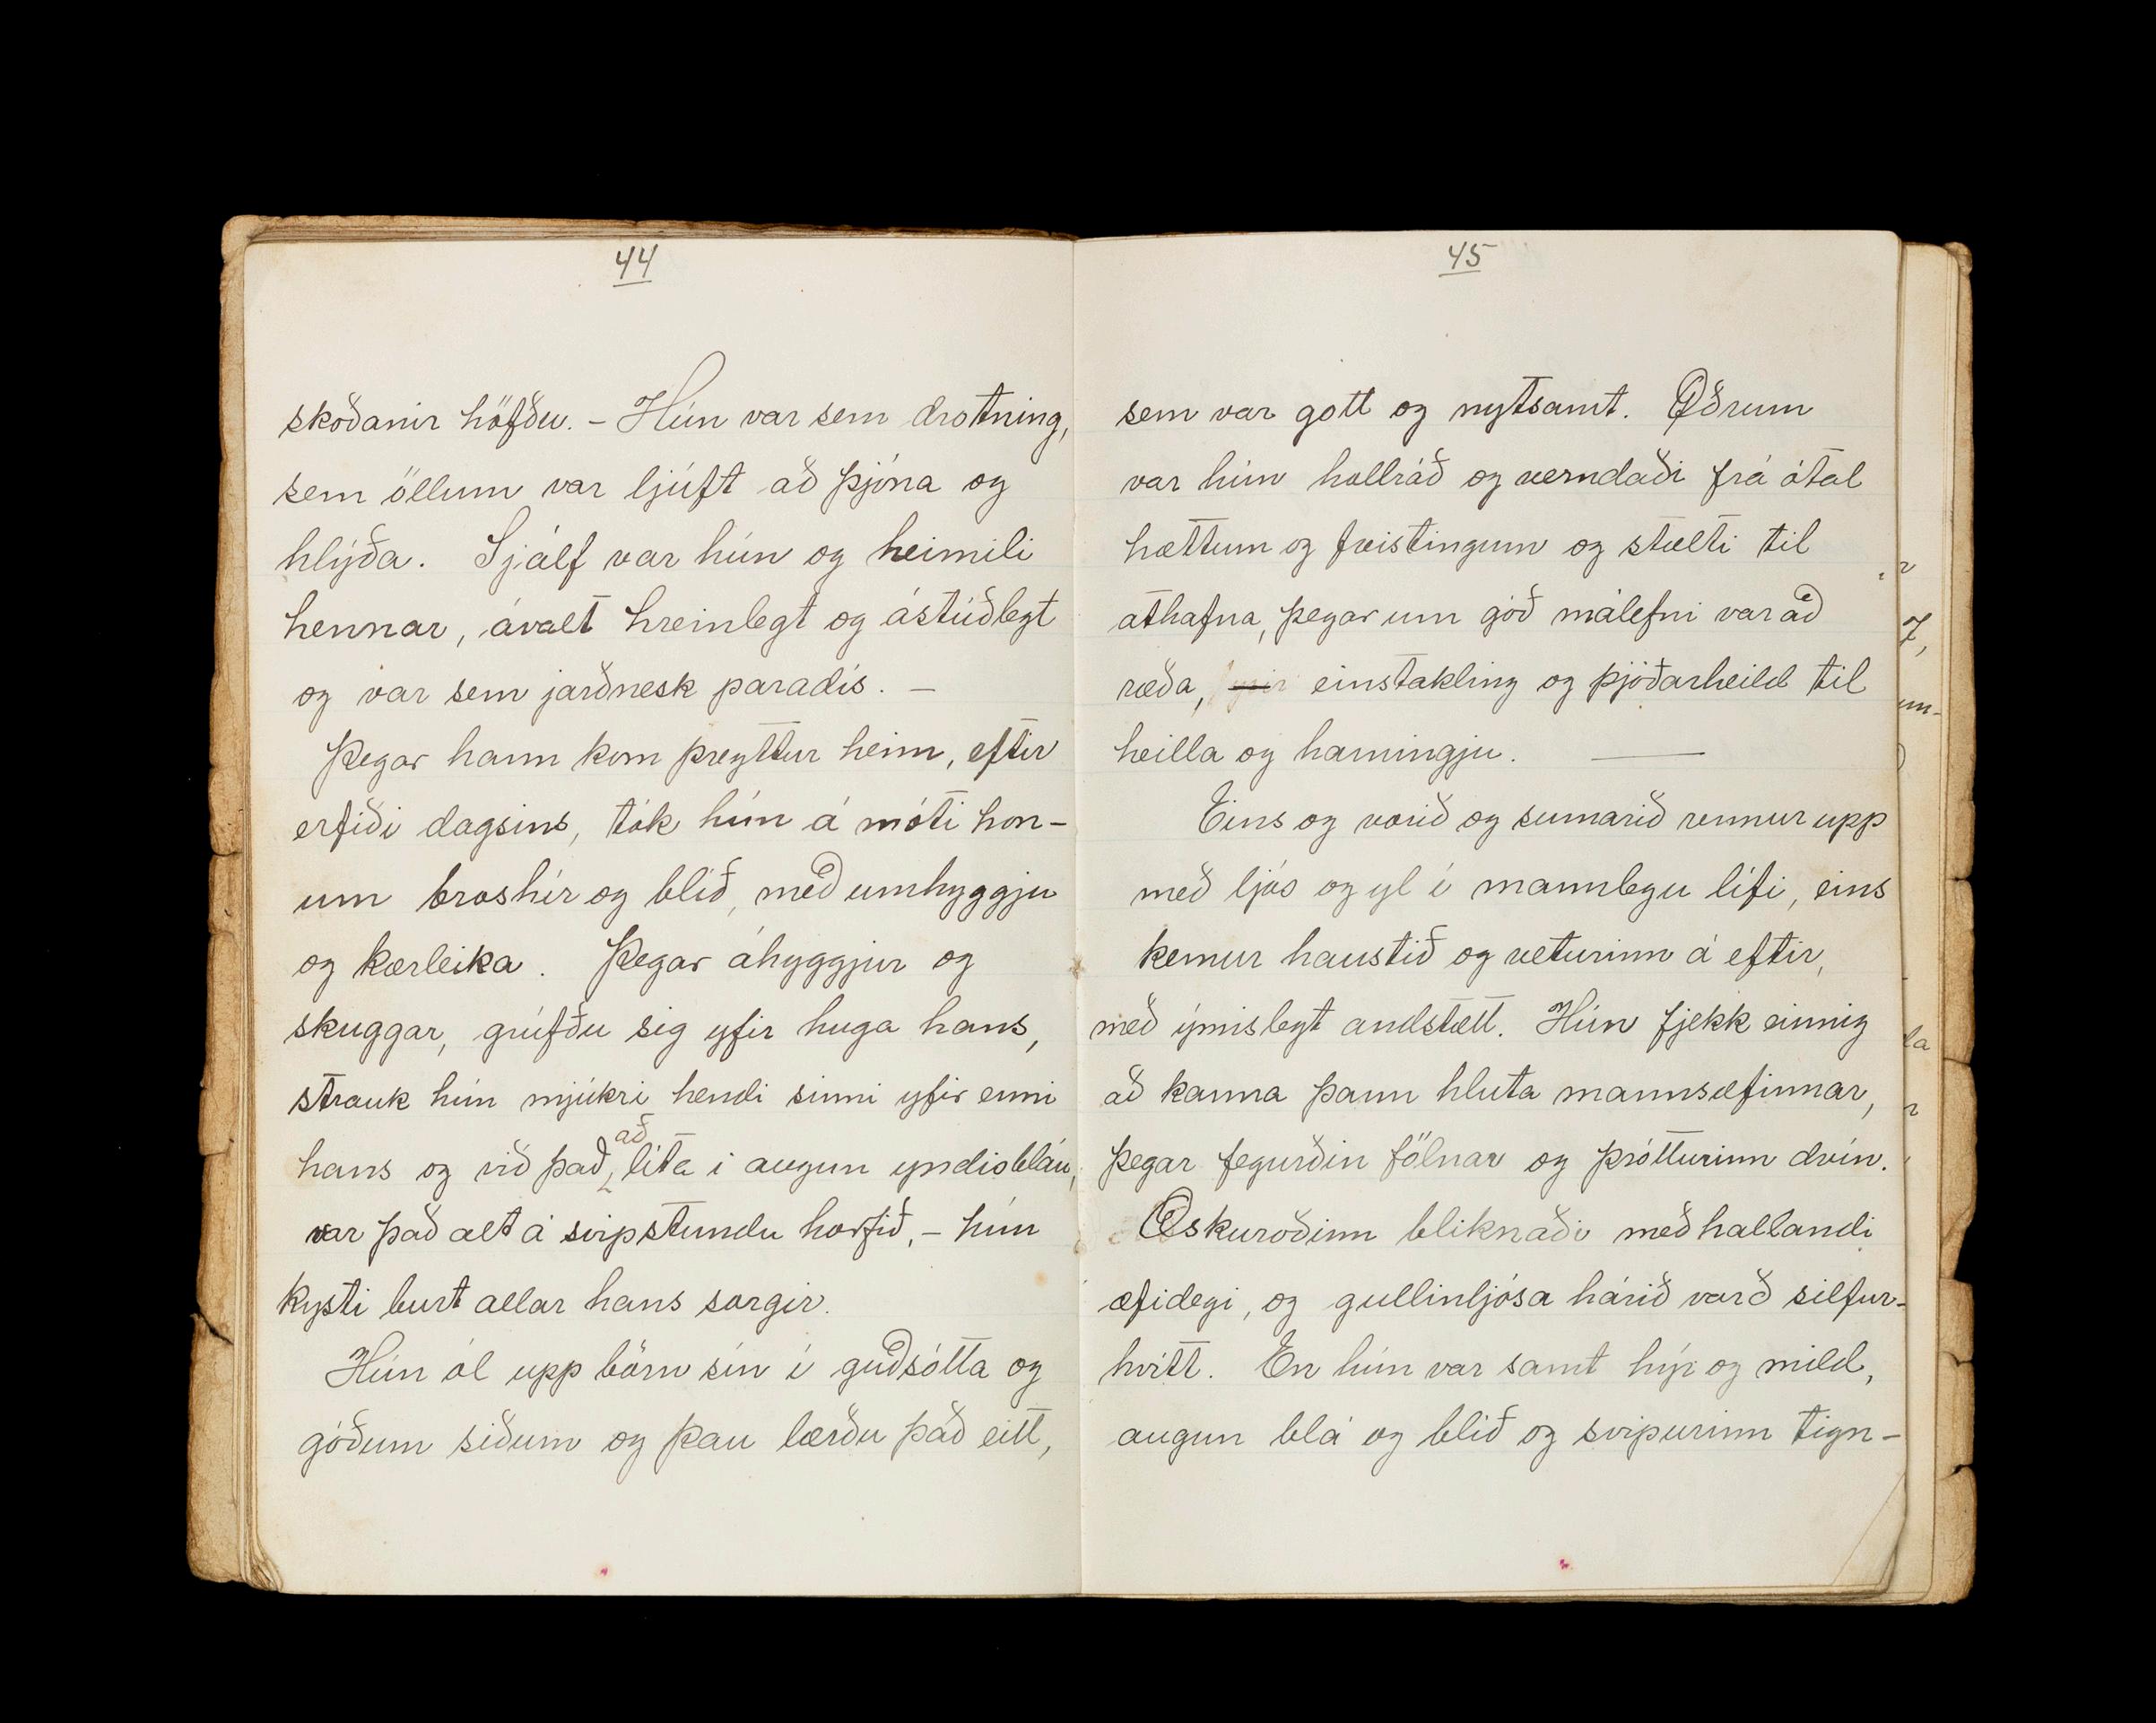 44
skoðanir höfðu. - Hún var sem drottning,
sem öllum var ljúft að þjóna og
hlýða. Sjálf var hún og heimili
hennar, ávalt hreinlegt og ástúðlegt
og var sem jarðnesk paradís. -
Þegar hann kom þreyttur heim, eftir
erfiði dagsins, tók hún á móti hon-
um broshír og blíð, með umhyggju
og kærleika. Þegar áhyggjur og
skuggar, grúfðu sig yfir huga hans,
strauk hún mjúkri hendi sinni yfir enni
hans og við það, að líta í augun yndisbláu,
var það alt á svipstundu horfið, - hún
kysti burt allar hans sorgir.
Hún ól upp börn sín í guðsótta og
góðum siðum og þau lærðu það eitt,
45
sem var gott og nytsamt. Öðrum
var hún hollráð og verndaði frá ótal
hættum og freistingum og stælti til
athafna, þegar um góð málefni var að
ræða, einstakling og þjóðarheild til
heilla og hamingju. —
Eins og vorið og sumarið rennur upp
með ljós og yl í mannlegu lífi, eins
kemur haustið og veturinn á eftir,
með ýmislegt andstætt. Hún fjekk einnig
að kanna þann hluta mannsæfinnar,
þegar fegurðin fölnar og þrótturinn dvín.
Æskuroðinn bliknaði með hallandi
æfidegi, og gullinljósa hárið varð silfur-
hvítt. En hún var samt hýr og mild,
augun blá og blíð og svipurinn tign-